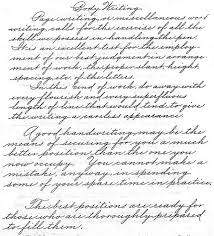 Body Writing.
Page writing, or miscellaneous work
writing, calls for the exercise of all the
skill we possess in handling the pen.
It is an excellent test for the employ-
ment of our best judgment in arrange-
ment of work, the proper slant, height
spacing, etc. of the letters.
In this kind of work do away with
every flourish and every superfluous
length of line that would tend to give
the writing a careless appearance.
A good handwriting may be the
means of securing for you a much
better position than the one you
now occupy. You cannot make a
mistake, anyway, in spending
some of your spare time in practice.
The best positions are ready for
those who are thoroughly prepared
to fill them.